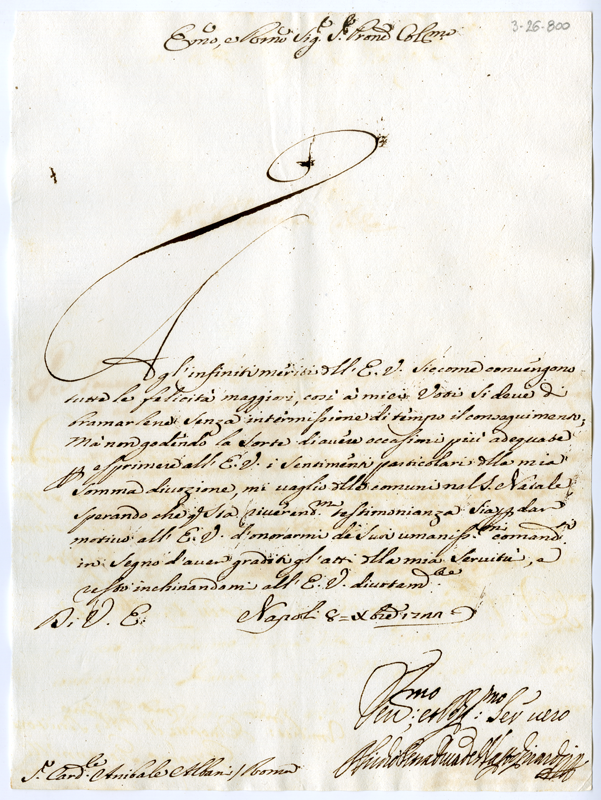 3-26-800
Emo, e Rmo Sig.r S.r Pron.e Col.mo
A gl'infiniti meriti dll'E. V. siccome convengono
tutte le felicità maggiori, così à miei Voti si deve di
bramarlene senza intermissione di tempo il conseguimento,
Mà non godendo la sorte di avere occasioni più adeguate
p esprimere all'E. V. i sentimenti particolari dlla mia
somma divozione, mi vaglio dlle comuni nel S. Natale
sperando che q.sta riverend.ma testimonianza sia p dar
motivo all'E. V. d'onorarmi de Suoi umaniss.mi comand.i
in segno d'aver graditi gl'atti dlla mia Servitù, e
resto inchinandomi all'E. V. divotam.te
Di V. E.
Napoli 8 = Xbre
Ser vero
S.r Card.le Anibale Albani / Roma